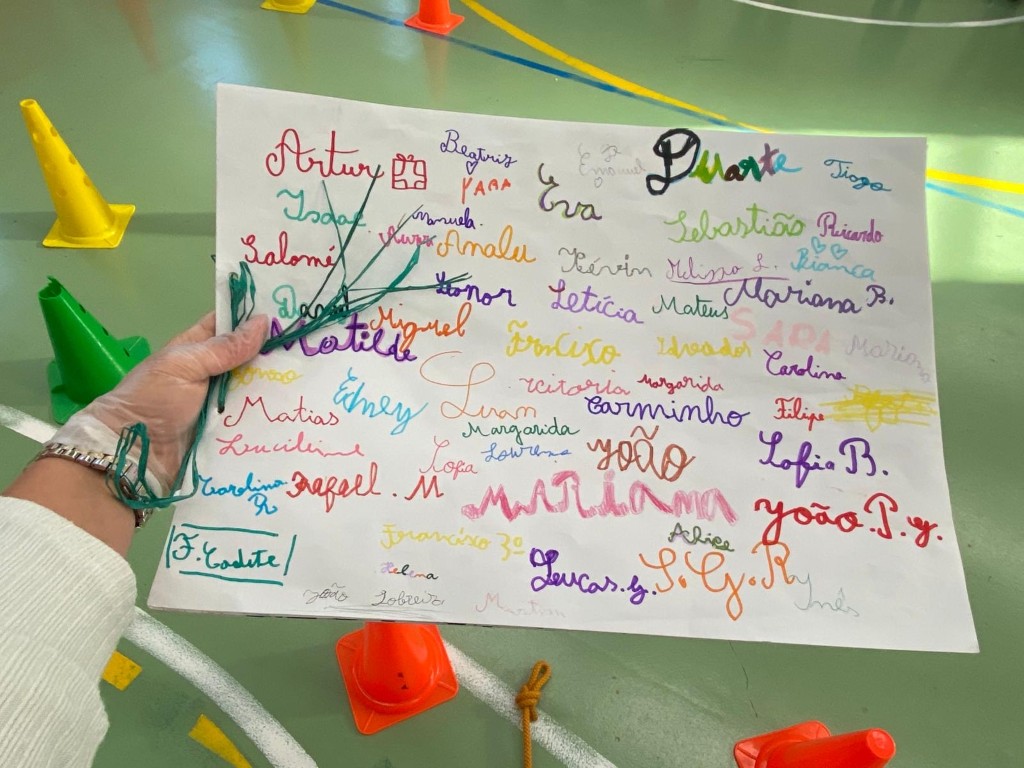 Artur
Beatriz
YARA
Emanuel
Duarte
Tiago
Isaac
Manuela
Eva
Sebastião
Ricardo
Salomé
Analu
Kévin
Melissa L.
Bianca
David
Leonor
Letícia
Mateus
Mariana B.
Miguel
SARA
Maria
Matilde
Carolina
Edney
Luan
Vitória
Margarida
Carminho
Filipe
Matias
Margarida
Lucilene
Sofia
Lourenç
João
Sofia B.
Carolina
R
Rafael . M
MARIAMA
João.P.g.
F. Cadete
Francisco 3º
Alice
Helena
Lucas.g.
S.G.R
João
Martim
Inês